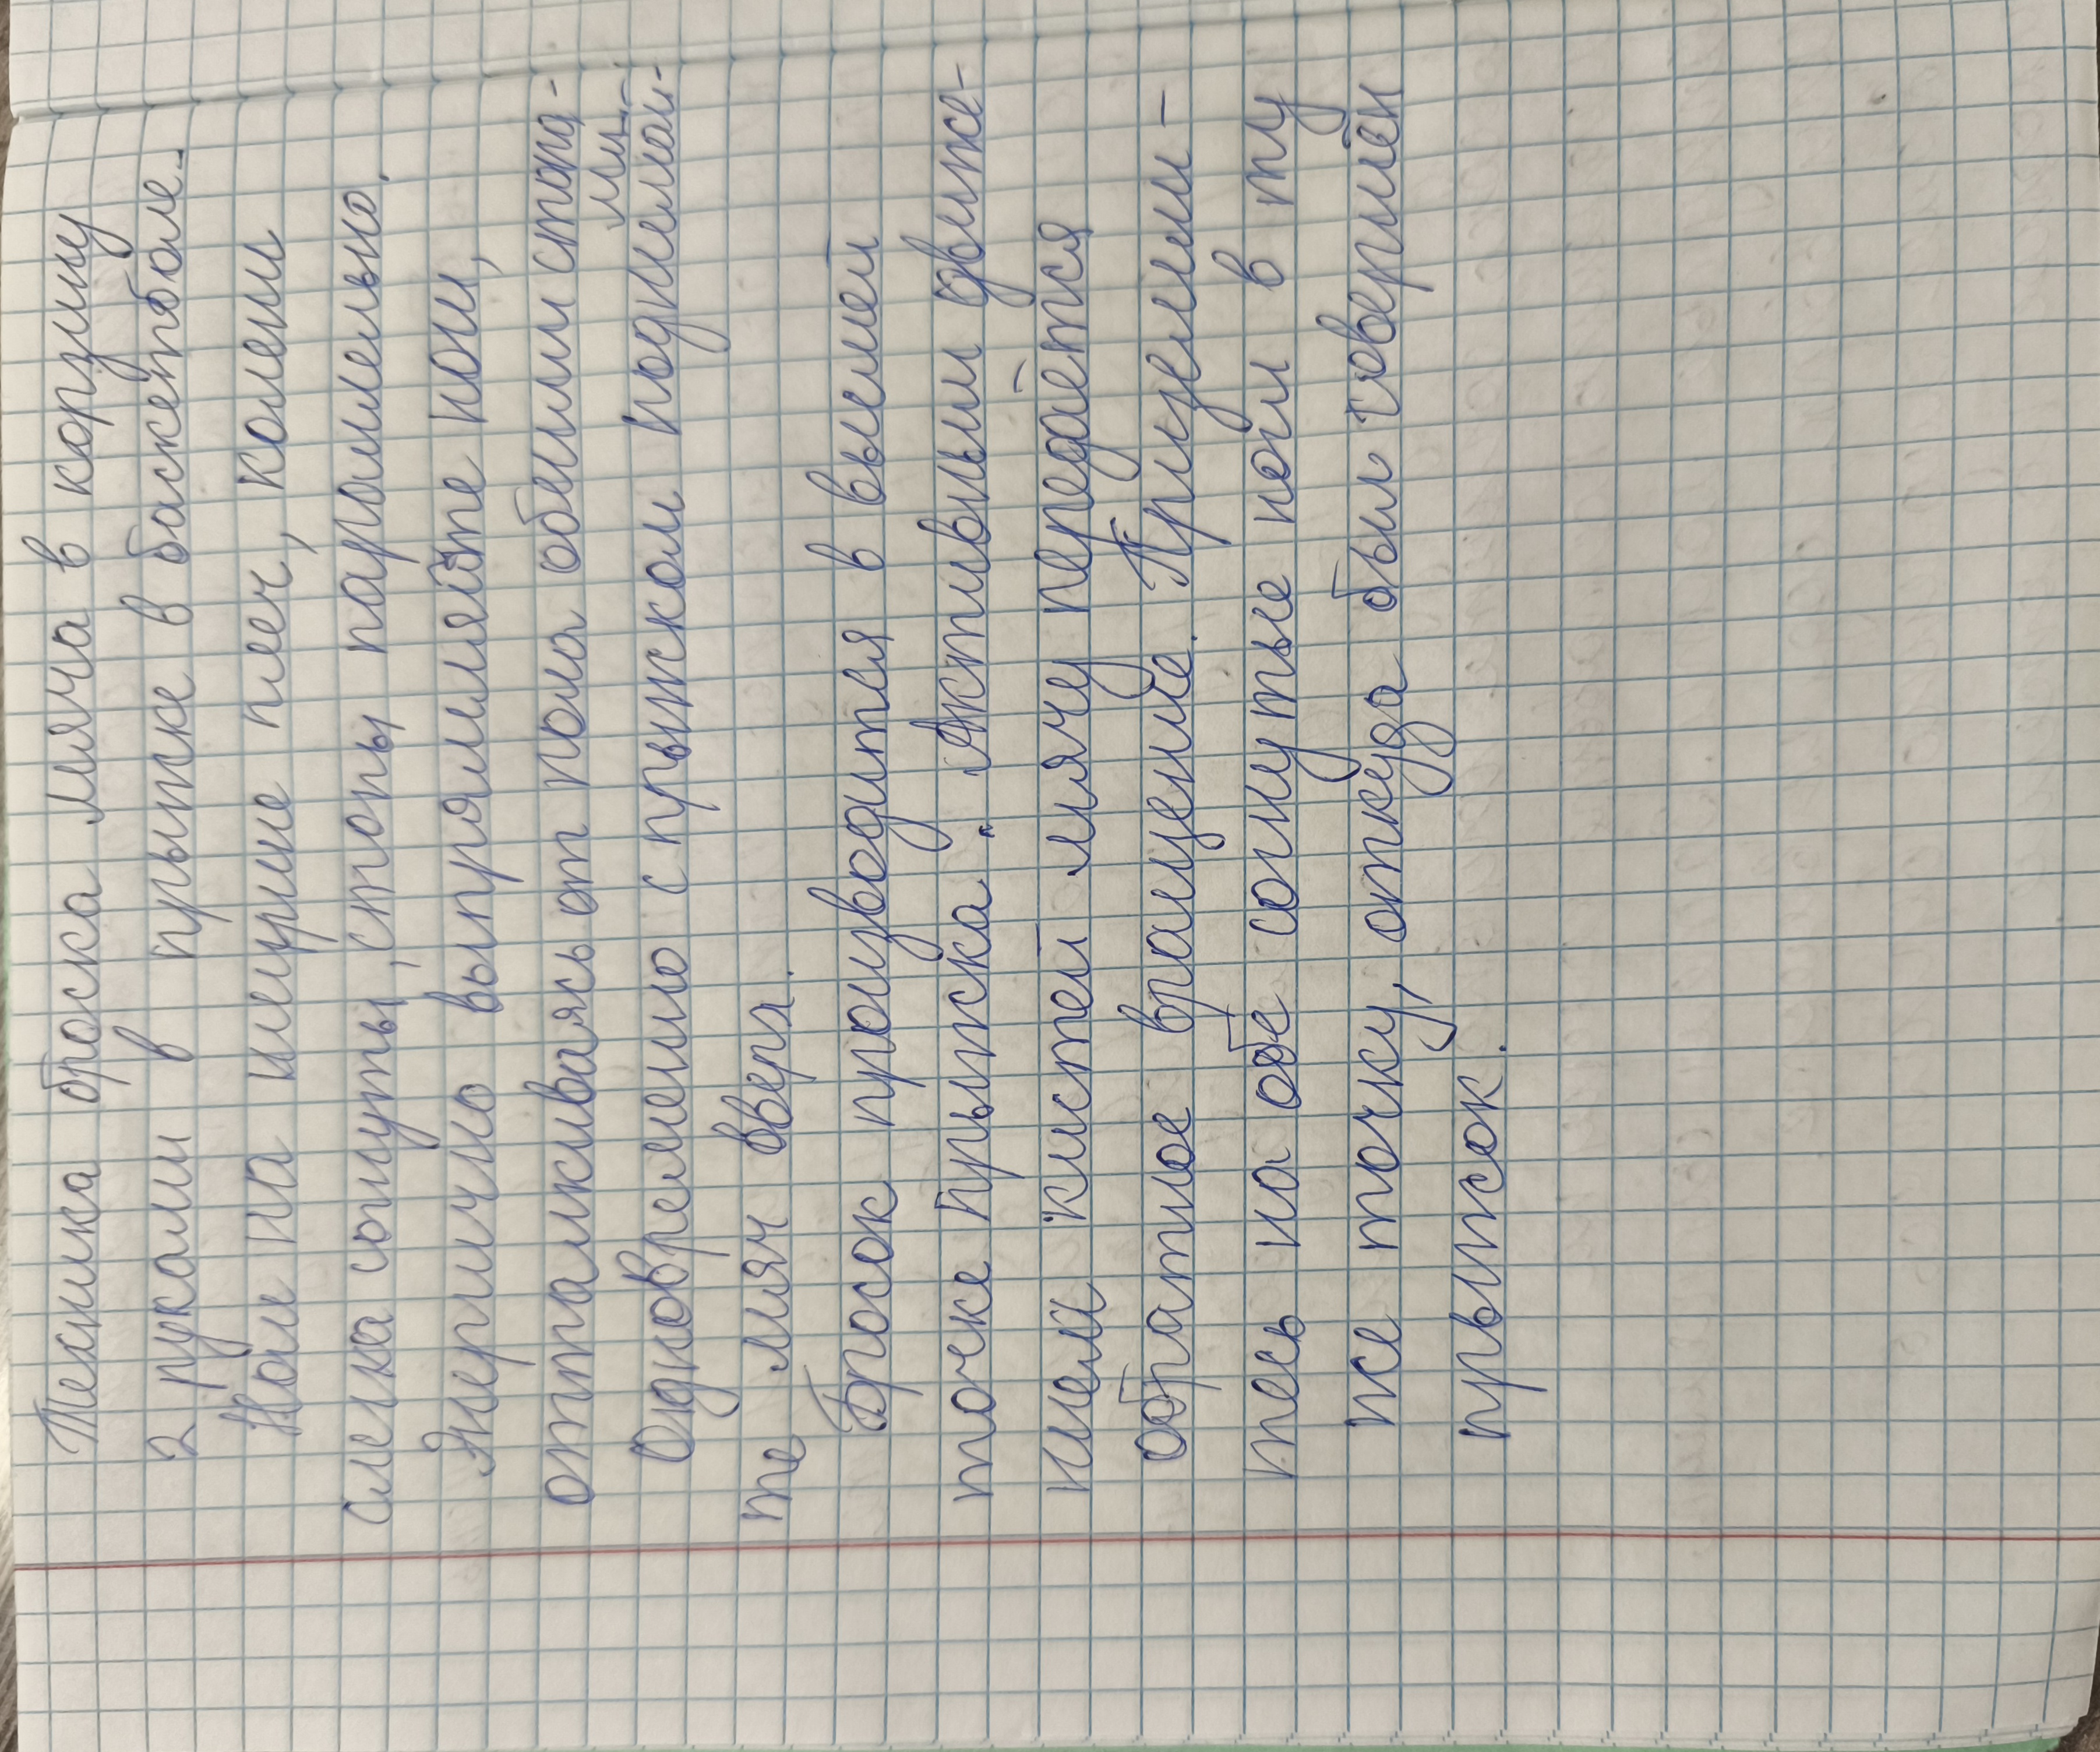 Техника броска мяча в корзину
2 руками в прыжке в баскетболе.
Ноги на ширине плеч, колени
слегка согнуты, стопы параллельно.
Энергично выпрямляйте ноги,
отталкиваясь от пола обеими стопа-
ми.
Одновременно с прыжком поднимай-
те мяч вверх.
Бросок производится в высшей
точке прыжка. Активным движе-
нием кистей мячу передаётся
обратное вращение. Приземли-
тесь на обе согнутые ноги в ту
же точку, откуда был совершён
прыжок.